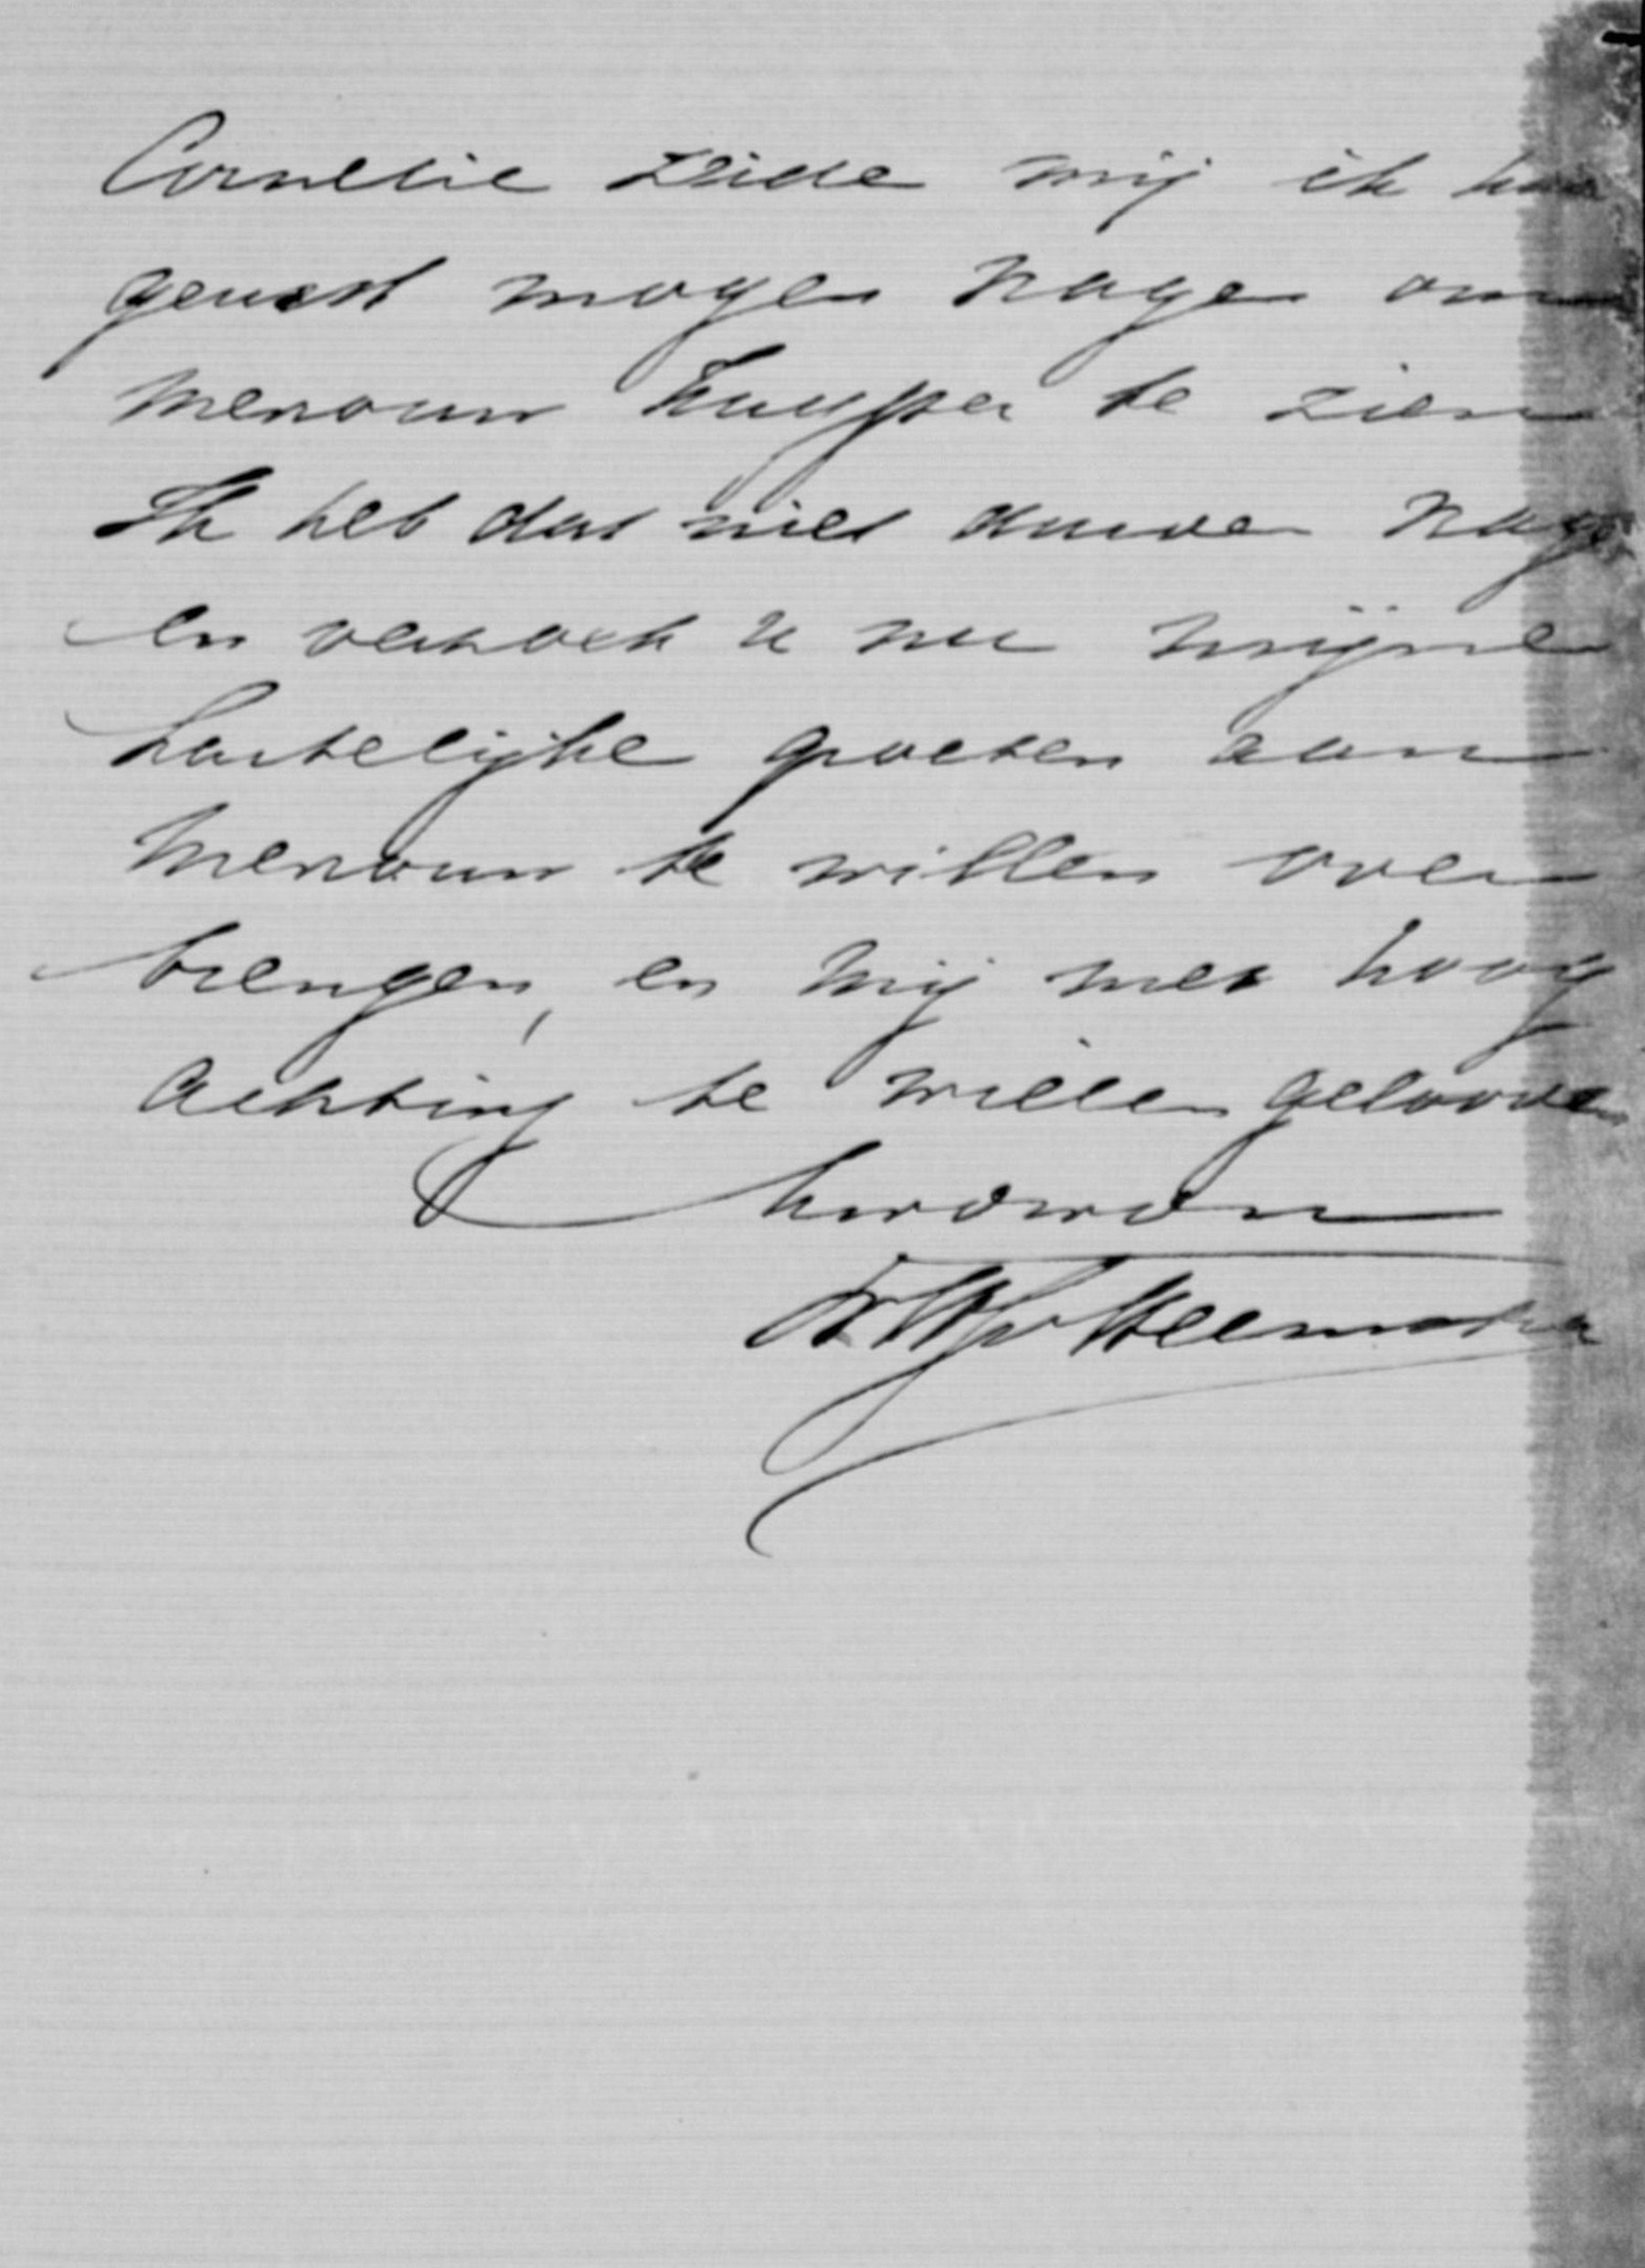 Cornelie zeide mij ik had
gerust mogen vragen om
Mevrouw Kuyper te zien
Ik heb dat niet durven vrage
en verzoek u nu mijne
hartelijke groeten aan
Mevrouw te willen over
brengen, en mij met hoog
achting te willen gelooven
Uw
Heemstra